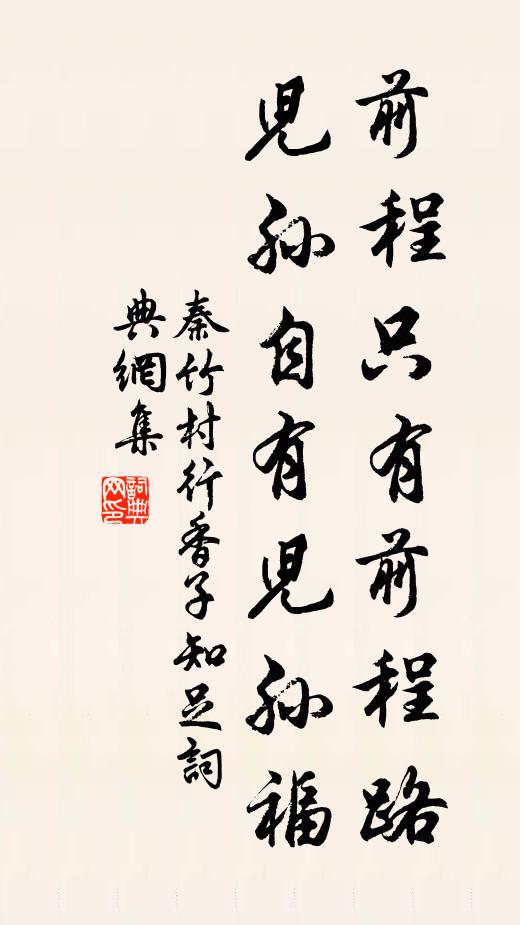 前程只有前程路
兒孫自有兒孫福
秦竹村行香子知足詞
典網集
詞典網印